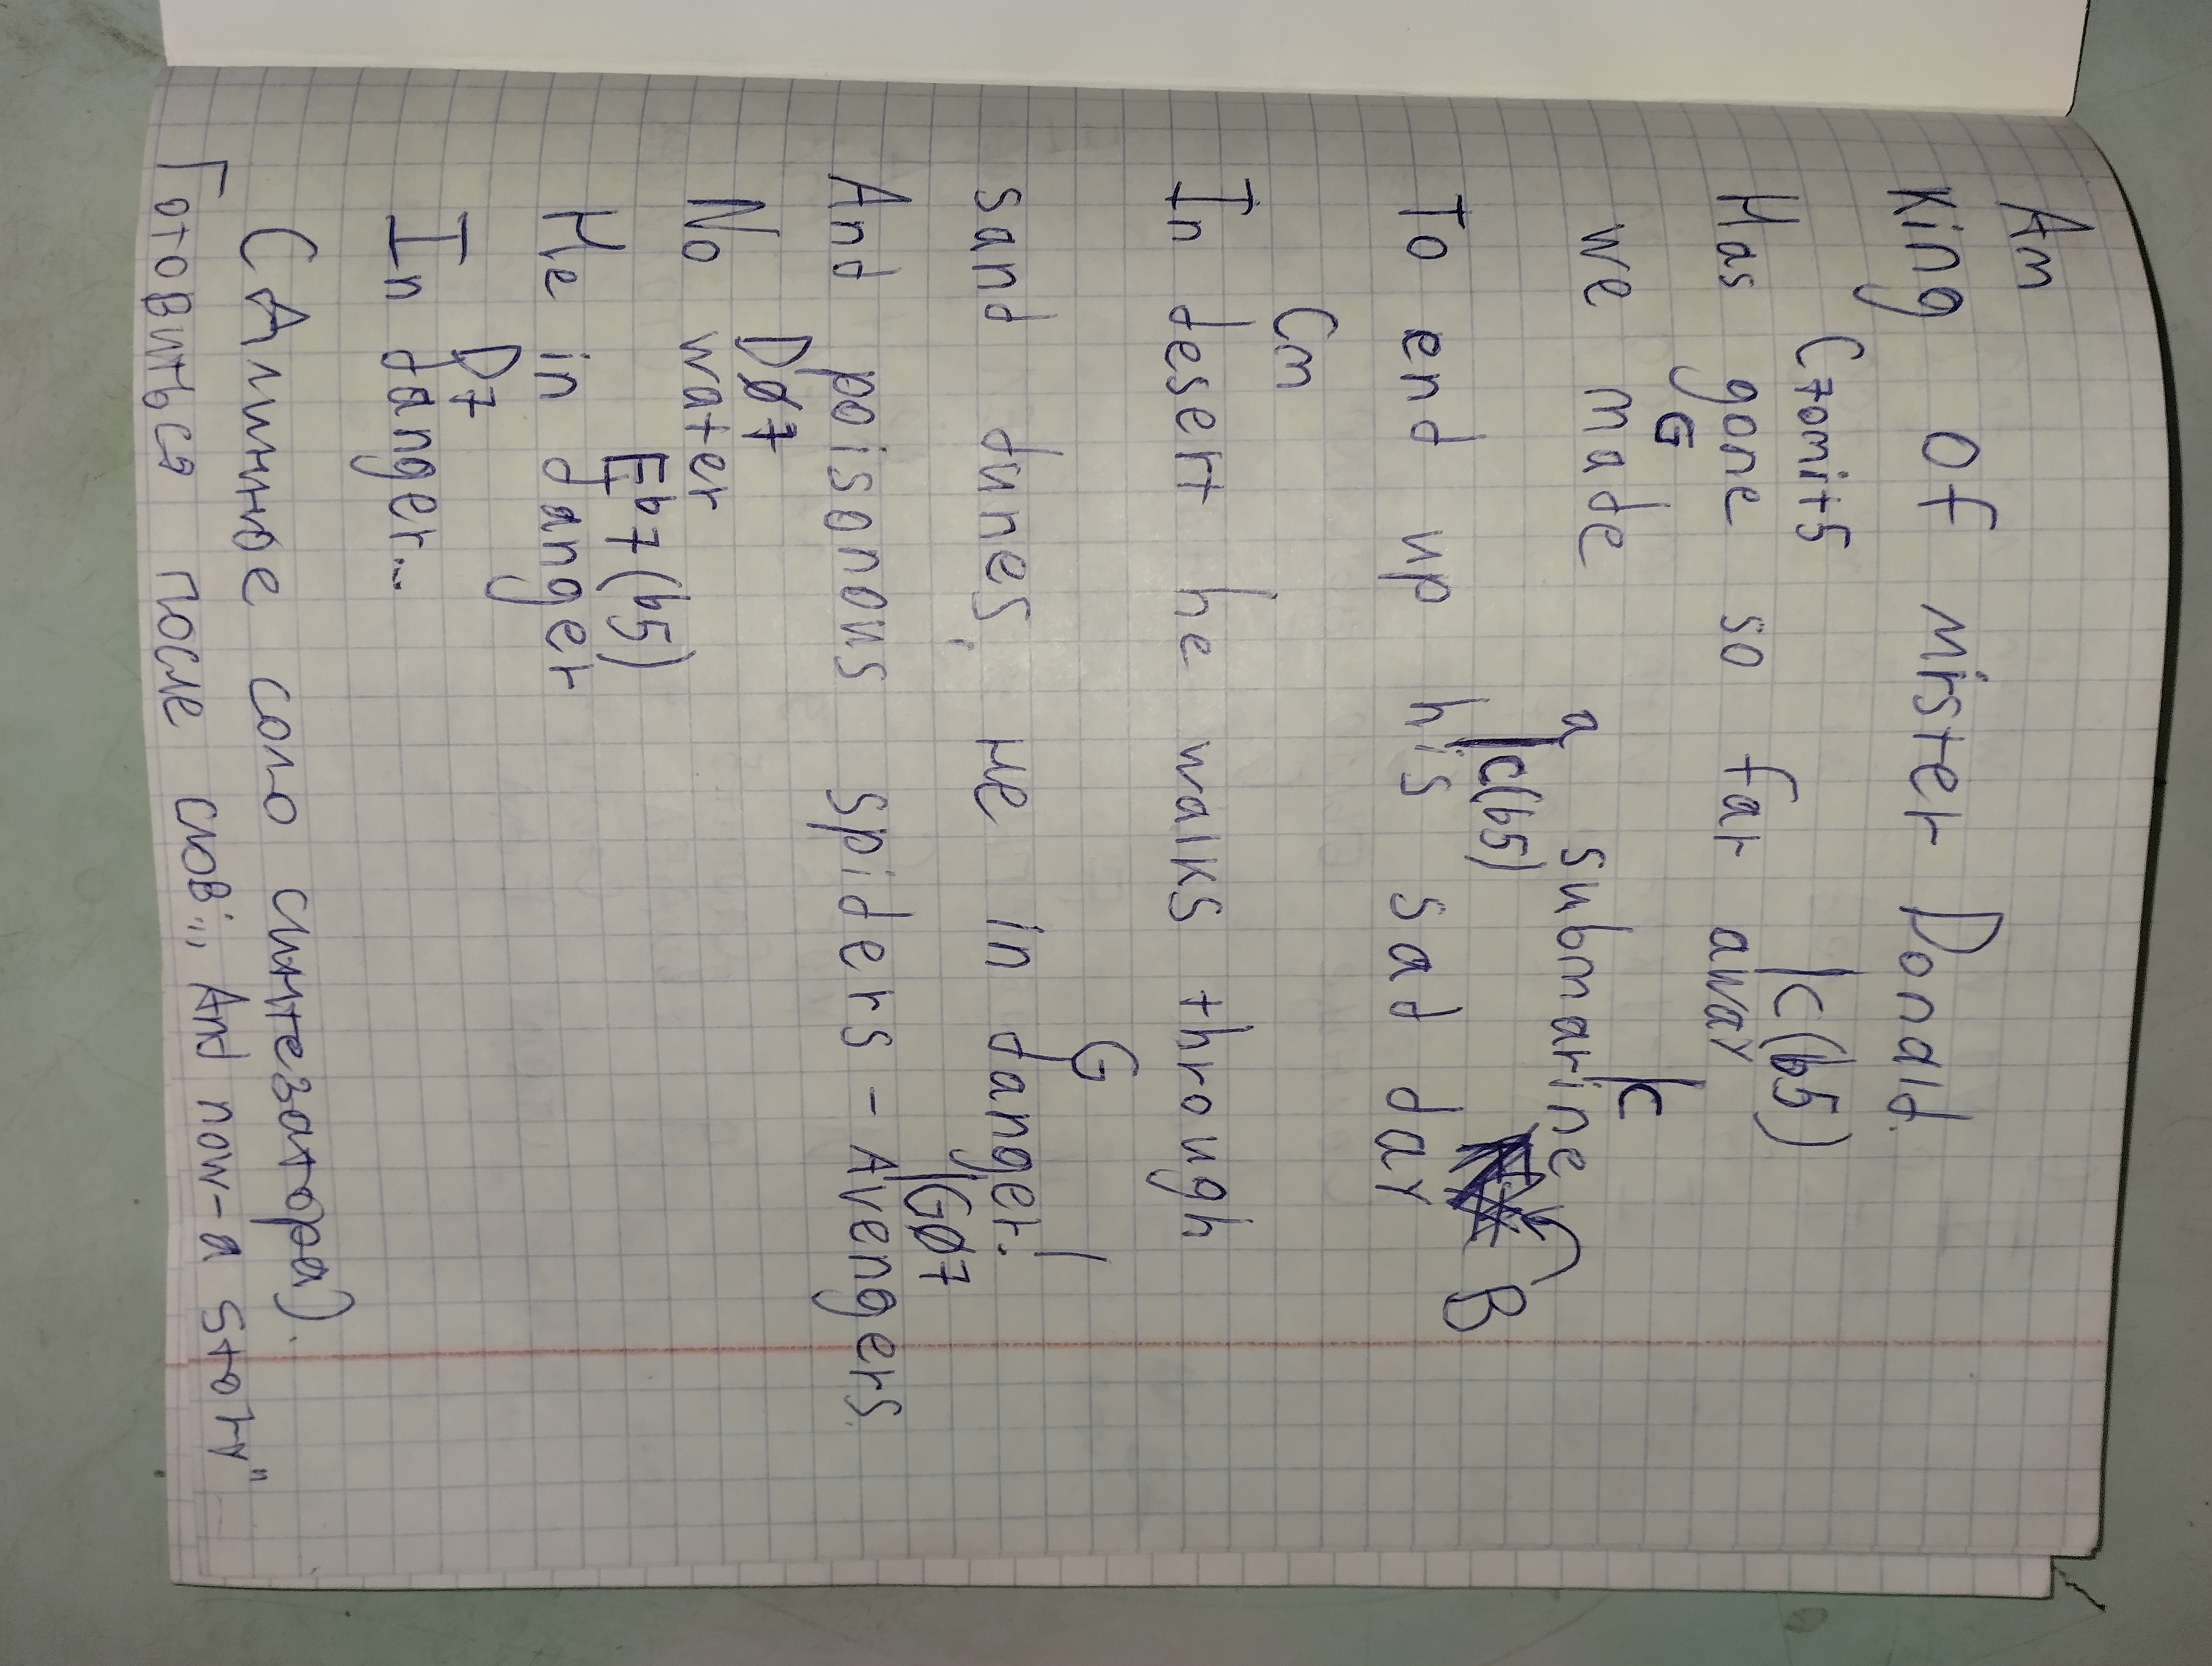 Am
King Of Mister Donald.
C7omit5 |C(b5)
Has gone so far away
G |C
we made a submarine
|C(b5) B
To end up his sad day
Cm
In desert he walks through
G |
sand dunes, He in danger.
|Gø7
And poisonous spiders - Avengers.
Dø7
No water
Eb7(b5)
He in danger
D7
In danger...
(Длинное соло синтезатора).
Готовиться после слов:,, And now-a story"